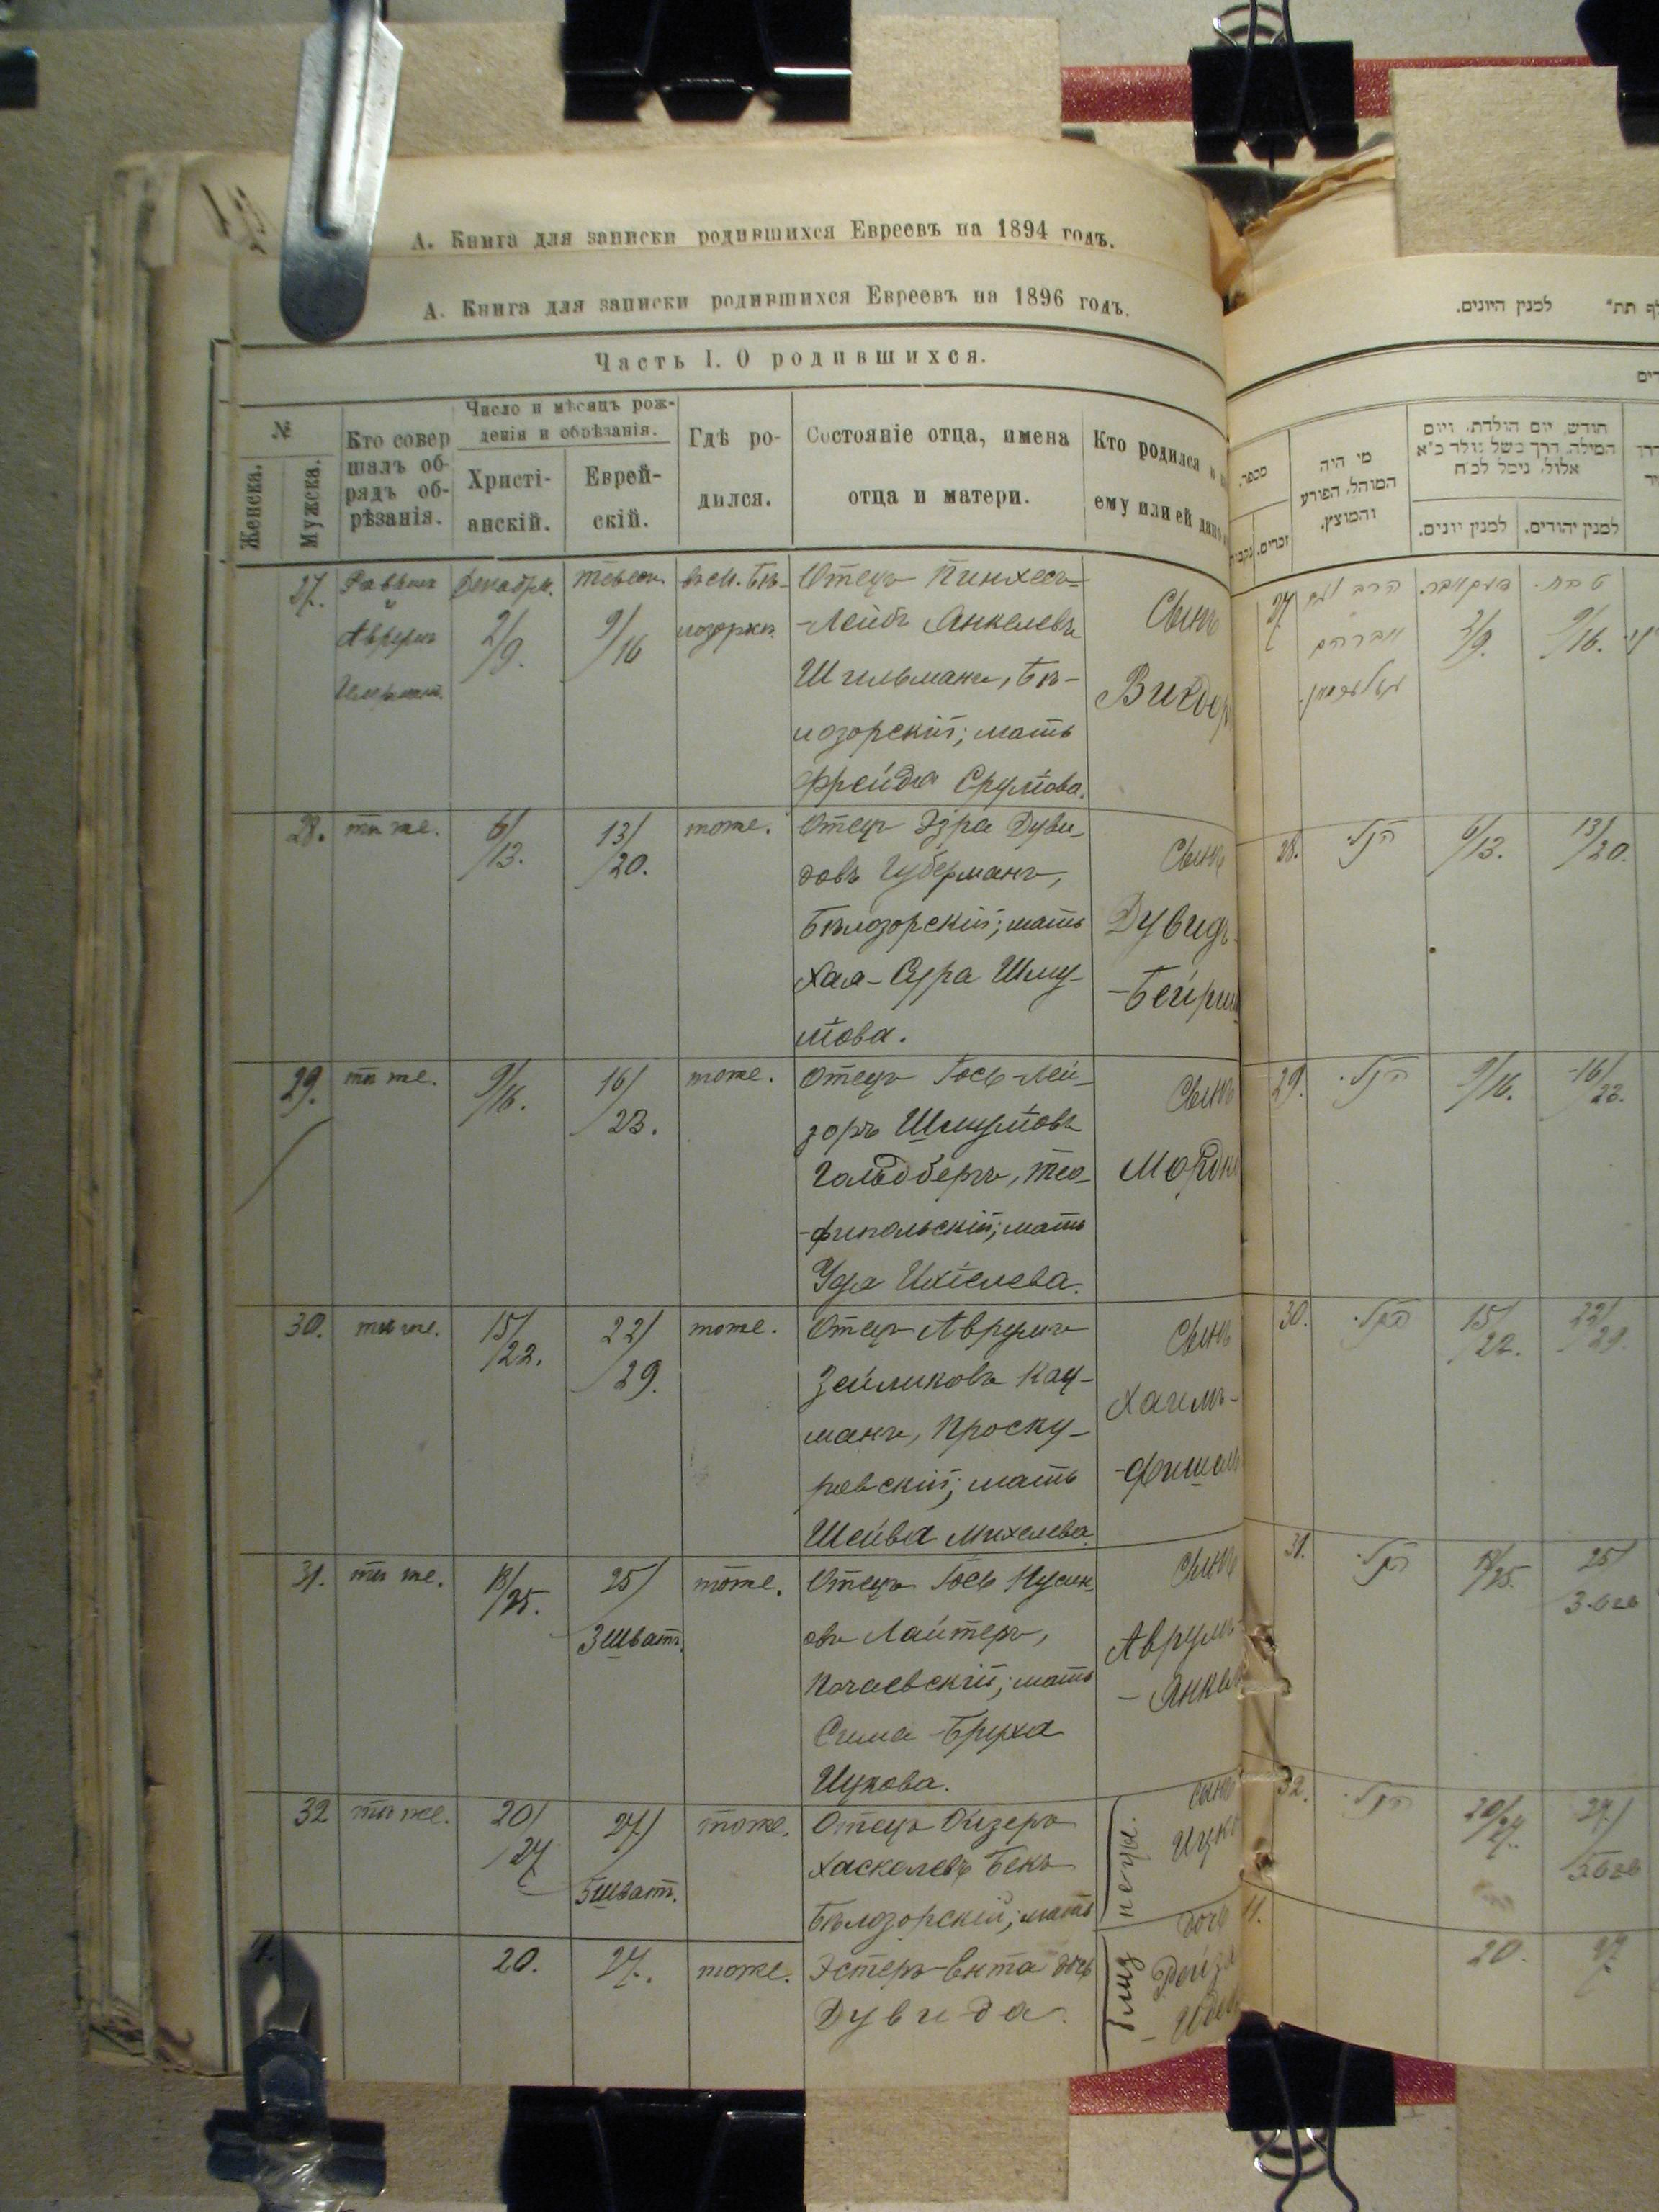 А. Книга для записки родившихся Евреевъ на 1894 годъ.
А. Книга для записки родившихся Евреевъ на 1896 годъ.
Часть I. О родившихся.
№
Женска.
Мужска.
Кто совер
шалъ об-
рядъ об-
рѣзанія.
Число и мѣсяцъ рож-
денія и обрѣзанія.
Христі-
анскій.
Еврей-
скій.
Гдѣ ро-
дился.
Состояніе отца, имена
отца и матери.
Кто родился и
ему или ей дано
27.
Раввинъ
и
Аврумъ
Декабрь.
2/9.
Тевесъ.
9/16
въ м. Бѣ-
лозоркѣ.
Отецъ Пинхесъ-
-Лейбъ Янкелевъ
Шильманъ, Бѣ-
лозорскій; мать
Фрейда Срулiова.
Сынъ
Вигдор
28.
тѣ же.
6/13.
13/20.
тоже.
Отецъ Эзра Дуви-
довъ Губерманъ,
Бѣлозорскій; мать
Хая-Сура Шму-
лiова.
Сынъ
Дувидъ-
-Бейриш
29.
тѣ же.
9/16.
16/23.
тоже.
Отецъ Іось-Лей-
зоръ Шмулiовъ
Гольдбергъ, Тео-
-фипольскій; мать
Удя Ихiелева.
Сынъ
Мордк
30.
тѣ же.
15/22.
22/29.
тоже.
Отецъ Аврумъ
Зейликовъ Кац-
манъ, Проску-
ровскій; мать
Шейва Михелева.
Сынъ
Хаимъ-
-Фишель
31.
тѣ же.
18/25.
25/
3 шватъ.
тоже.
Отецъ Іось Нусин-
овъ Лайтеръ,
Почаевскій; мать
Сима-Бруха
Ицкова.
Сынъ
Аврумъ
-Янкель
32
тѣ же.
20/27
27/
5 шватъ.
тоже.
Отецъ Ойзеръ
Хаскелевъ Бекъ
Бѣлозорскій; мать
близ
нецы.
сынъ
Ицко
11.
20.
27.
тоже.
Эстеръ-Ента дочь
Дувида.
дочь
Рейзя
למנין היונים.
מספר.
זכרים.
מי היה
המוהל, הפורע
והמוצץ.
חודש, יום הולדת, ויום
המילה, דרך משל נולד כ"א
אלול, נימל לכ"ח
למנין יונים.
למנין יהודים.
27
2/9.
9/16.
28.
6/13.
13/20.
29.
9/16.
16/23.
30.
15/22.
22/29.
31.
18/25.
25/
32.
20/27.
27/
11.
20.
27